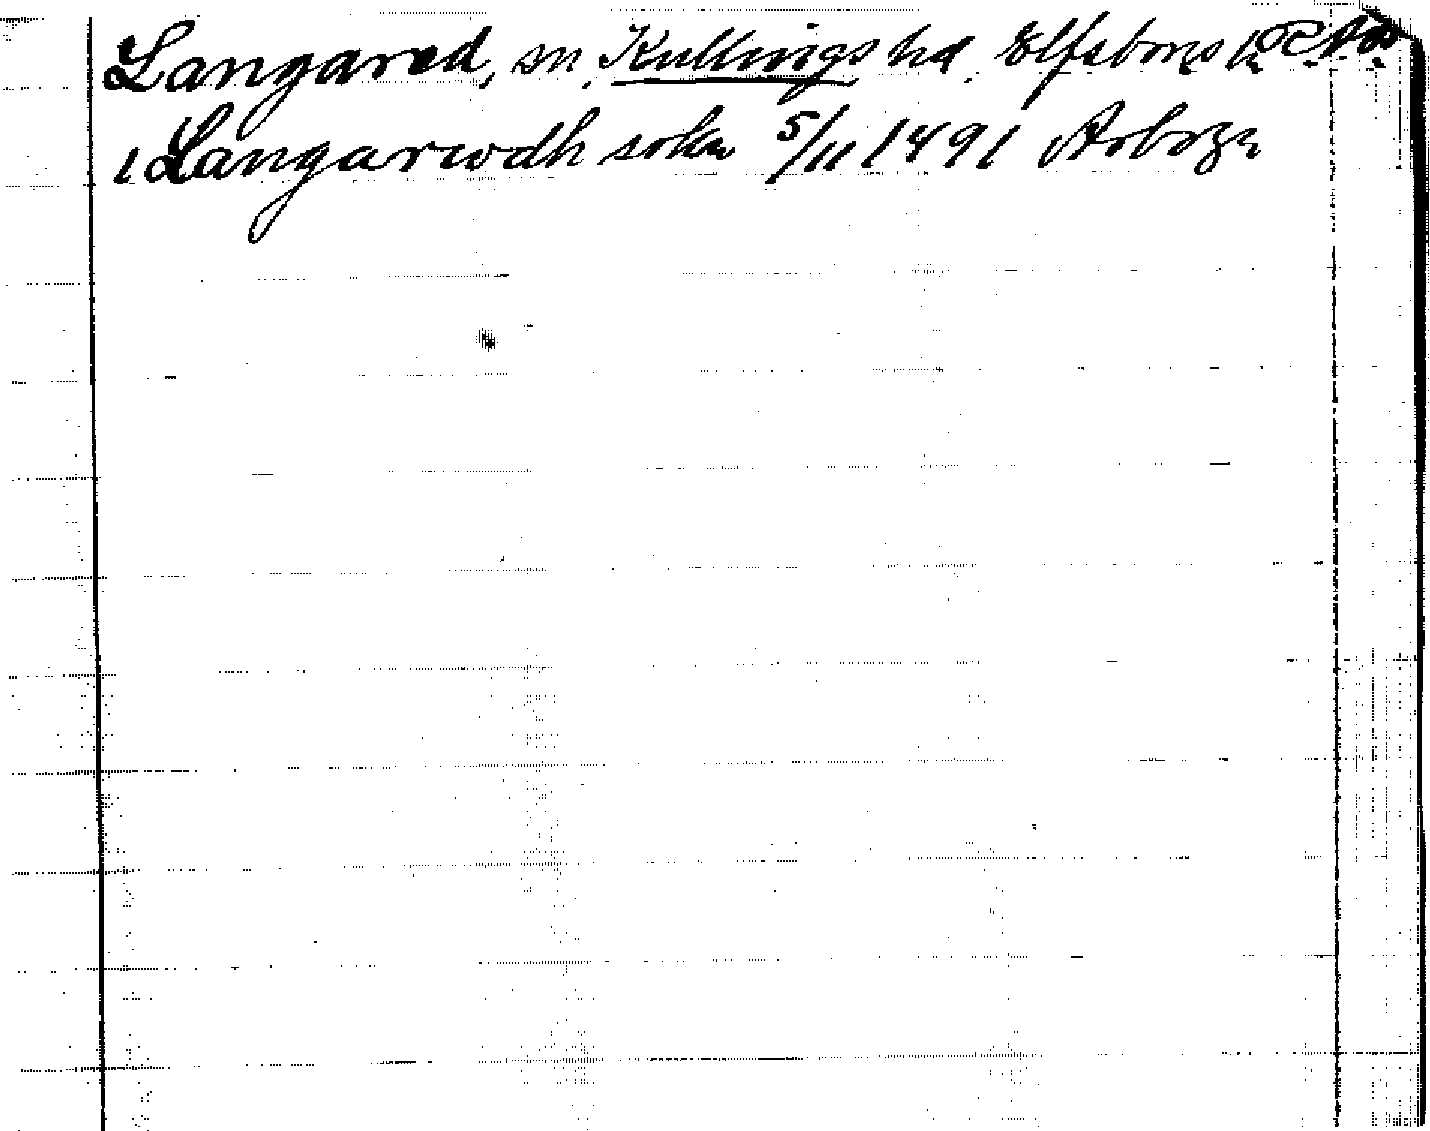 Langared, sn, Kullings hd. Elfsborgs l.
1 Langarwdh sokn 5/11 1491 Arboga